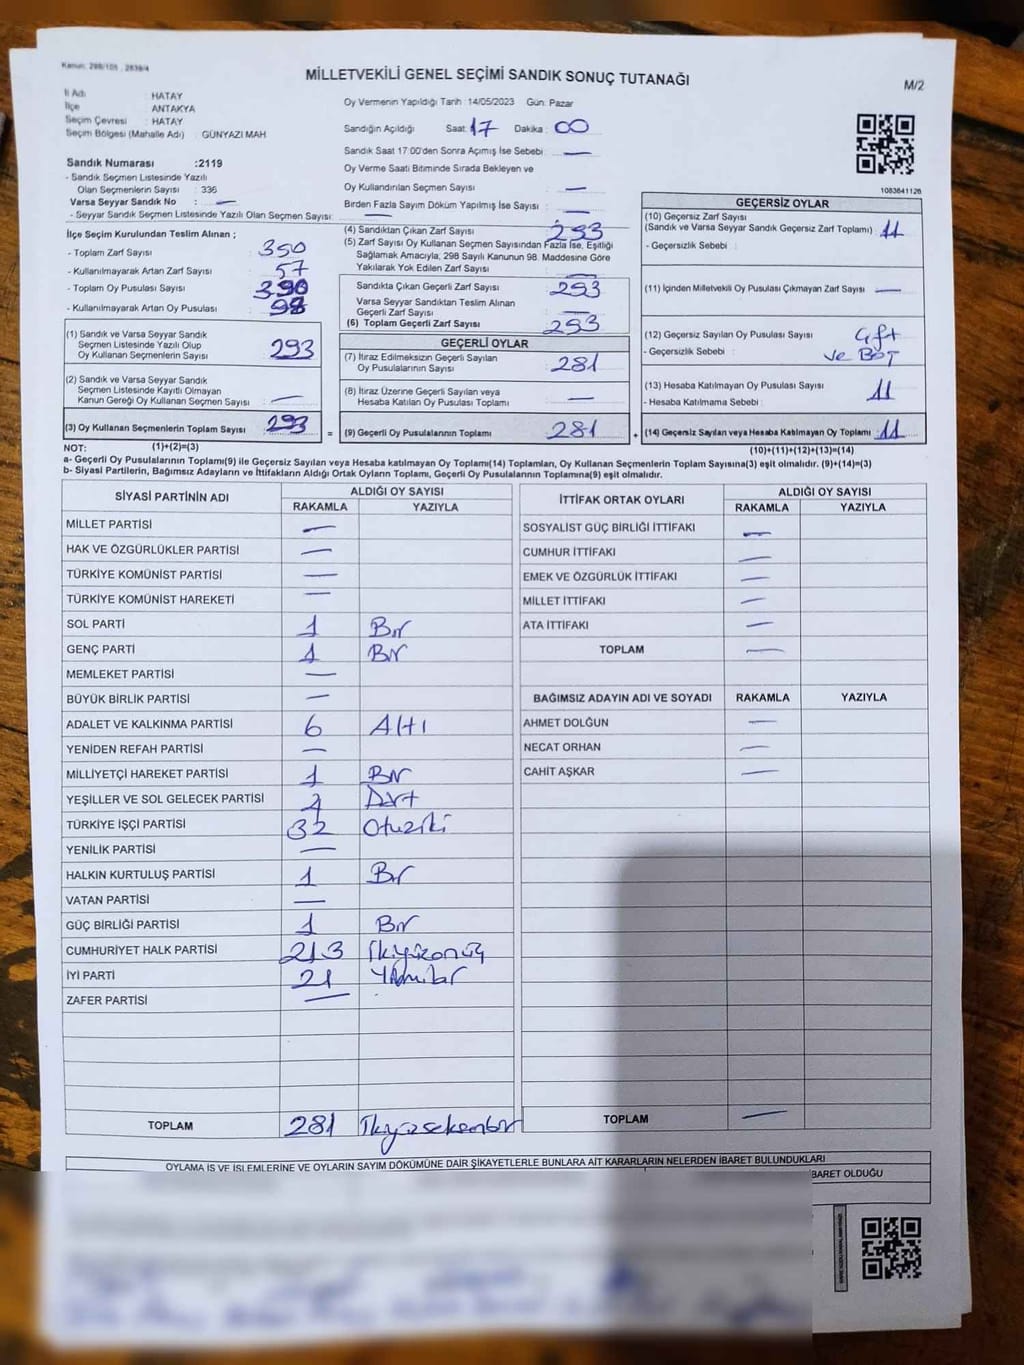 Kanun: 298/105 , 2839/4
MİLLETVEKİLİ GENEL SEÇİMİ SANDIK SONUÇ TUTANAĞI
M/2
İl Adı : HATAY
İlçe : ANTAKYA
Seçim Çevresi : HATAY
Seçim Bölgesi (Mahalle Adı) : GÜNYAZI MAH
Sandık Numarası :2119
- Sandık Seçmen Listesinde Yazılı
Olan Seçmenlerin Sayısı : 336
Varsa Seyyar Sandık No : —
- Seyyar Sandık Seçmen Listesinde Yazılı Olan Seçmen Sayısı: —
İlçe Seçim Kurulundan Teslim Alınan ;
- Toplam Zarf Sayısı : 350
- Kullanılmayarak Artan Zarf Sayısı : 57
- Toplam Oy Pusulası Sayısı : 390
- Kullanılmayarak Artan Oy Pusulası : 98
(1) Sandık ve Varsa Seyyar Sandık
Seçmen Listesinde Yazılı Olup
Oy Kullanan Seçmenlerin Sayısı : 293
(2) Sandık ve Varsa Seyyar Sandık
Seçmen Listesinde Kayıtlı Olmayan
Kanun Gereği Oy Kullanan Seçmen Sayısı : —
(3) Oy Kullanan Seçmenlerin Toplam Sayısı : 293
Oy Vermenin Yapıldığı Tarih : 14/05/2023 Gün: Pazar
Sandığın Açıldığı Saat: 17 Dakika : 00
Sandık Saat 17:00'den Sonra Açımış İse Sebebi : —
Oy Verme Saati Bitiminde Sırada Bekleyen ve
Oy Kullandırılan Seçmen Sayısı : —
Birden Fazla Sayım Döküm Yapılmış İse Sayısı : —
(4) Sandıktan Çıkan Zarf Sayısı : 293
(5) Zarf Sayısı Oy Kullanan Seçmen Sayısından Fazla İse, Eşitliği
Sağlamak Amacıyla, 298 Sayılı Kanunun 98. Maddesine Göre
Yakılarak Yok Edilen Zarf Sayısı : —
Sandıkta Çıkan Geçerli Zarf Sayısı : 293
Varsa Seyyar Sandıktan Teslim Alınan
Geçerli Zarf Sayısı : —
(6) Toplam Geçerli Zarf Sayısı : 293
GEÇERLİ OYLAR
(7) İtiraz Edilmeksizin Geçerli Sayılan
Oy Pusulalarının Sayısı : 281
(8) İtiraz Üzerine Geçerli Sayılan veya
Hesaba Katılan Oy Pusulası Toplamı : —
= (9) Geçerli Oy Pusulalarının Toplamı : 281
1083641126
GEÇERSİZ OYLAR
(10) Geçersiz Zarf Sayısı
(Sandık ve Varsa Seyyar Sandık Geçersiz Zarf Toplamı) : 11
- Geçersizlik Sebebi :
(11) İçinden Milletvekili Oy Pusulası Çıkmayan Zarf Sayısı : —
(12) Geçersiz Sayılan Oy Pusulası Sayısı : Çift
- Geçersizlik Sebebi : ve Boş
(13) Hesaba Katılmayan Oy Pusulası Sayısı : 11
- Hesaba Katılmama Sebebi :
+ (14) Geçersiz Sayılan veya Hesaba Katılmayan Oy Toplamı : 11
NOT: (1)+(2)=(3)
(10)+(11)+(12)+(13)=(14)
a- Geçerli Oy Pusulasının Toplamı(9) ile Geçersiz Sayılan veya Hesaba katılmayan Oy Toplamı(14) Toplamları, Oy Kullanan Seçmenlerin Toplam Sayısına(3) eşit olmalıdır. (9)+(14)=(3)
b- Siyasi Partilerin, Bağımsız Adayların ve İttifakların Aldığı Ortak Oyların Toplamı, Geçerli Oy Pusulalarının Toplamına(9) eşit olmalıdır.
SİYASİ PARTİNİN ADI ALDIĞI OY SAYISI
RAKAMLA YAZIYLA
MİLLET PARTİSİ —
HAK VE ÖZGÜRLÜKLER PARTİSİ —
TÜRKİYE KOMÜNİST PARTİSİ —
TÜRKİYE KOMÜNİST HAREKETİ —
SOL PARTİ 1 Bir
GENÇ PARTİ 1 Bir
MEMLEKET PARTİSİ —
BÜYÜK BİRLİK PARTİSİ —
ADALET VE KALKINMA PARTİSİ 6 Altı
YENİDEN REFAH PARTİSİ —
MİLLİYETÇİ HAREKET PARTİSİ 1 Bir
YEŞİLLER VE SOL GELECEK PARTİSİ 4 Dört
TÜRKİYE İŞÇİ PARTİSİ 32 Otuziki
YENİLİK PARTİSİ —
HALKIN KURTULUŞ PARTİSİ 1 Bir
VATAN PARTİSİ —
GÜÇ BİRLİĞİ PARTİSİ 1 Bir
CUMHURİYET HALK PARTİSİ 213 İkiyüzonüç
İYİ PARTİ 21 Yirmibir
ZAFER PARTİSİ —
TOPLAM 281 İkiyüzseksenbir
İTTİFAK ORTAK OYLARI ALDIĞI OY SAYISI
RAKAMLA YAZIYLA
SOSYALİST GÜÇ BİRLİĞİ İTTİFAKI —
CUMHUR İTTİFAKI —
EMEK VE ÖZGÜRLÜK İTTİFAKI —
MİLLET İTTİFAKI —
ATA İTTİFAKI —
TOPLAM —
BAĞIMSIZ ADAYIN ADI VE SOYADI RAKAMLA YAZIYLA
AHMET DOLĞUN —
NECAT ORHAN —
CAHİT AŞKAR —
TOPLAM —
OYLAMA İŞ VE İŞLEMLERİNE VE OYLARIN SAYIM DÖKÜMÜNE DAİR ŞİKAYETLERLE BUNLARA AİT KARARLARIN NELERDEN İBARET BULUNDUKLARI
BARET OLDUĞU